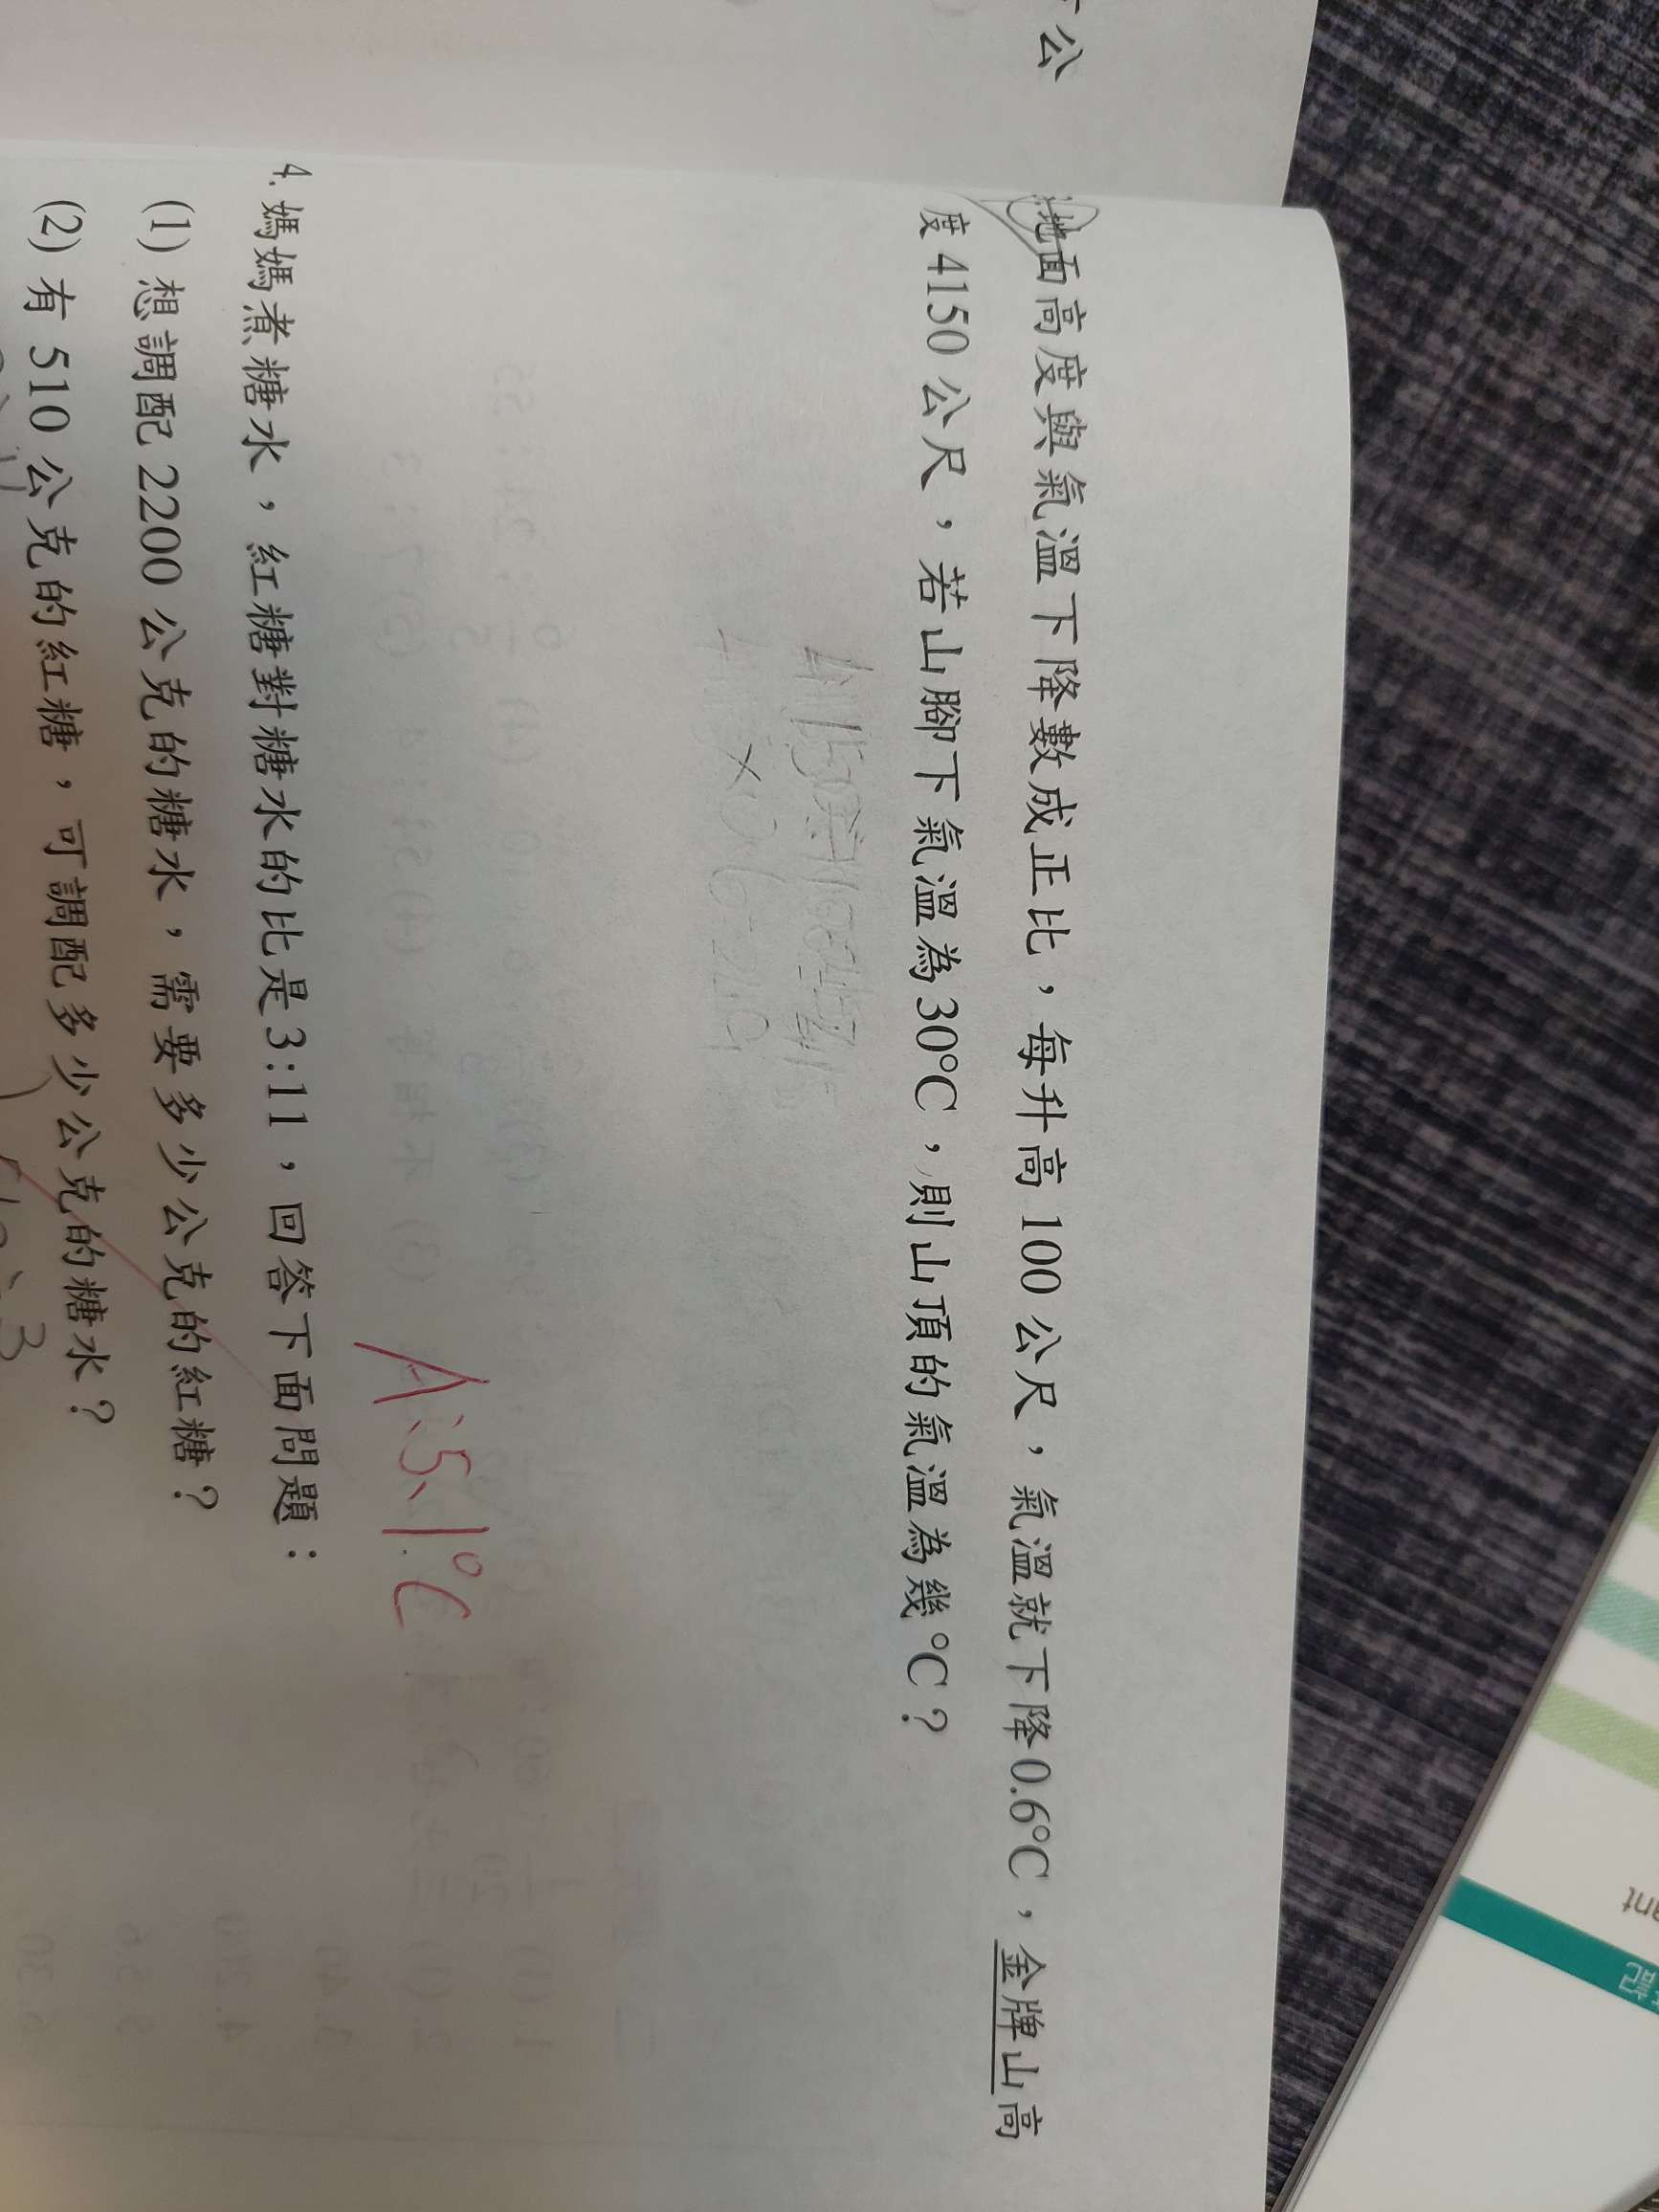 公
地面高度與氣溫下降數成正比，每升高100公尺，氣溫就下降0.6°C，金牌山高
度4150公尺，若山腳下氣溫為30°C，則山頂的氣溫為幾°C？
A:5.1°C
4. 媽媽煮糖水，紅糖對糖水的比是3:11，回答下面問題：
(1) 想調配2200公克的糖水，需要多少公克的紅糖？
(2) 有510公克的紅糖，可調配多少公克的糖水？